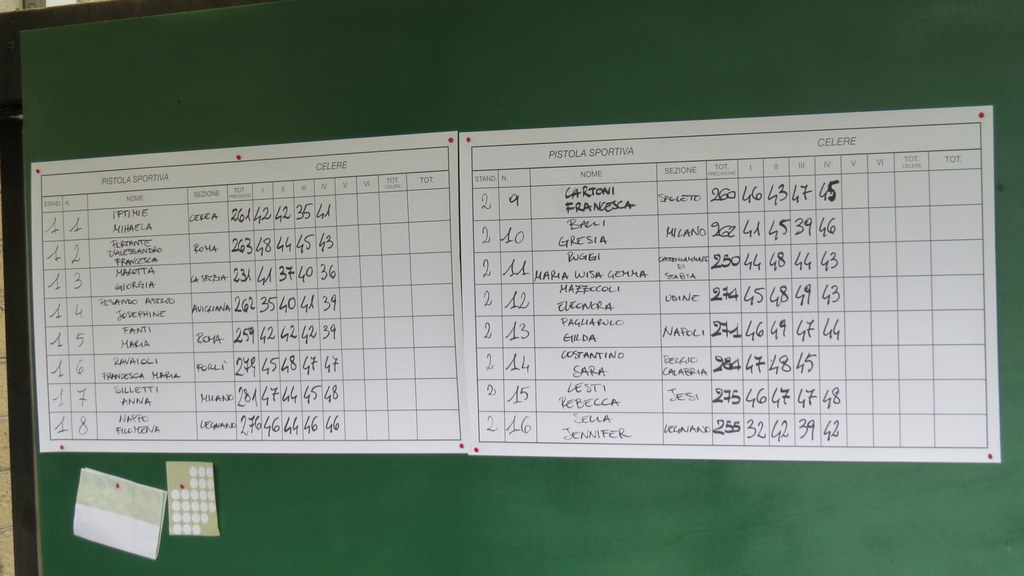 PISTOLA SPORTIVA CELERE
STAND N. NOME SEZIONE TOT. PRECISIONE I II III IV V VI TOT. CELERE TOT.
1 1 IFTIMIE MIHAELA 261 42 42 35 41
1 2 PORTANTE D'ALESSANDRO FRANCESCA ROMA 263 48 44 45 43
1 3 MAROTTA GIORGIA LA SPEZIA 231 41 37 40 36
1 4 JOSEPHINE AVIGLIANA 262 35 40 41 39
1 5 FANTI MARIA ROMA 259 42 42 42 39
1 6 RAVAIOLI FRANCESCA MARIA FORLÌ 45 48 47 47
1 7 SILLETTI ANNA MILANO 281 47 44 45 48
1 8 NAPPO FILOMENA LEGNANO 276 46 44 46 46
PISTOLA SPORTIVA CELERE
STAND N. NOME SEZIONE TOT. PRECISIONE I II III IV V VI TOT. CELERE TOT.
2 9 CARTONI FRANCESCA SPOLETO 260 46 43 47 45
2 10 BALLI GRESIA MILANO 262 41 45 39 46
2 11 RUGGI MARIA LUISA GEMMA CASTELLAMMARE DI STABIA 250 44 48 44 43
2 12 MAZZOCOLI ELEONORA UDINE 274 45 48 49 43
2 13 PAGLIARULO GILDA NAPOLI 271 46 49 47 44
2 14 COSTANTINO SARA REGGIO CALABRIA 284 47 48 45
2 15 LESTI REBECCA JESI 275 46 47 47 48
2 16 SELLA JENNIFER LEGNANO 255 32 42 39 42